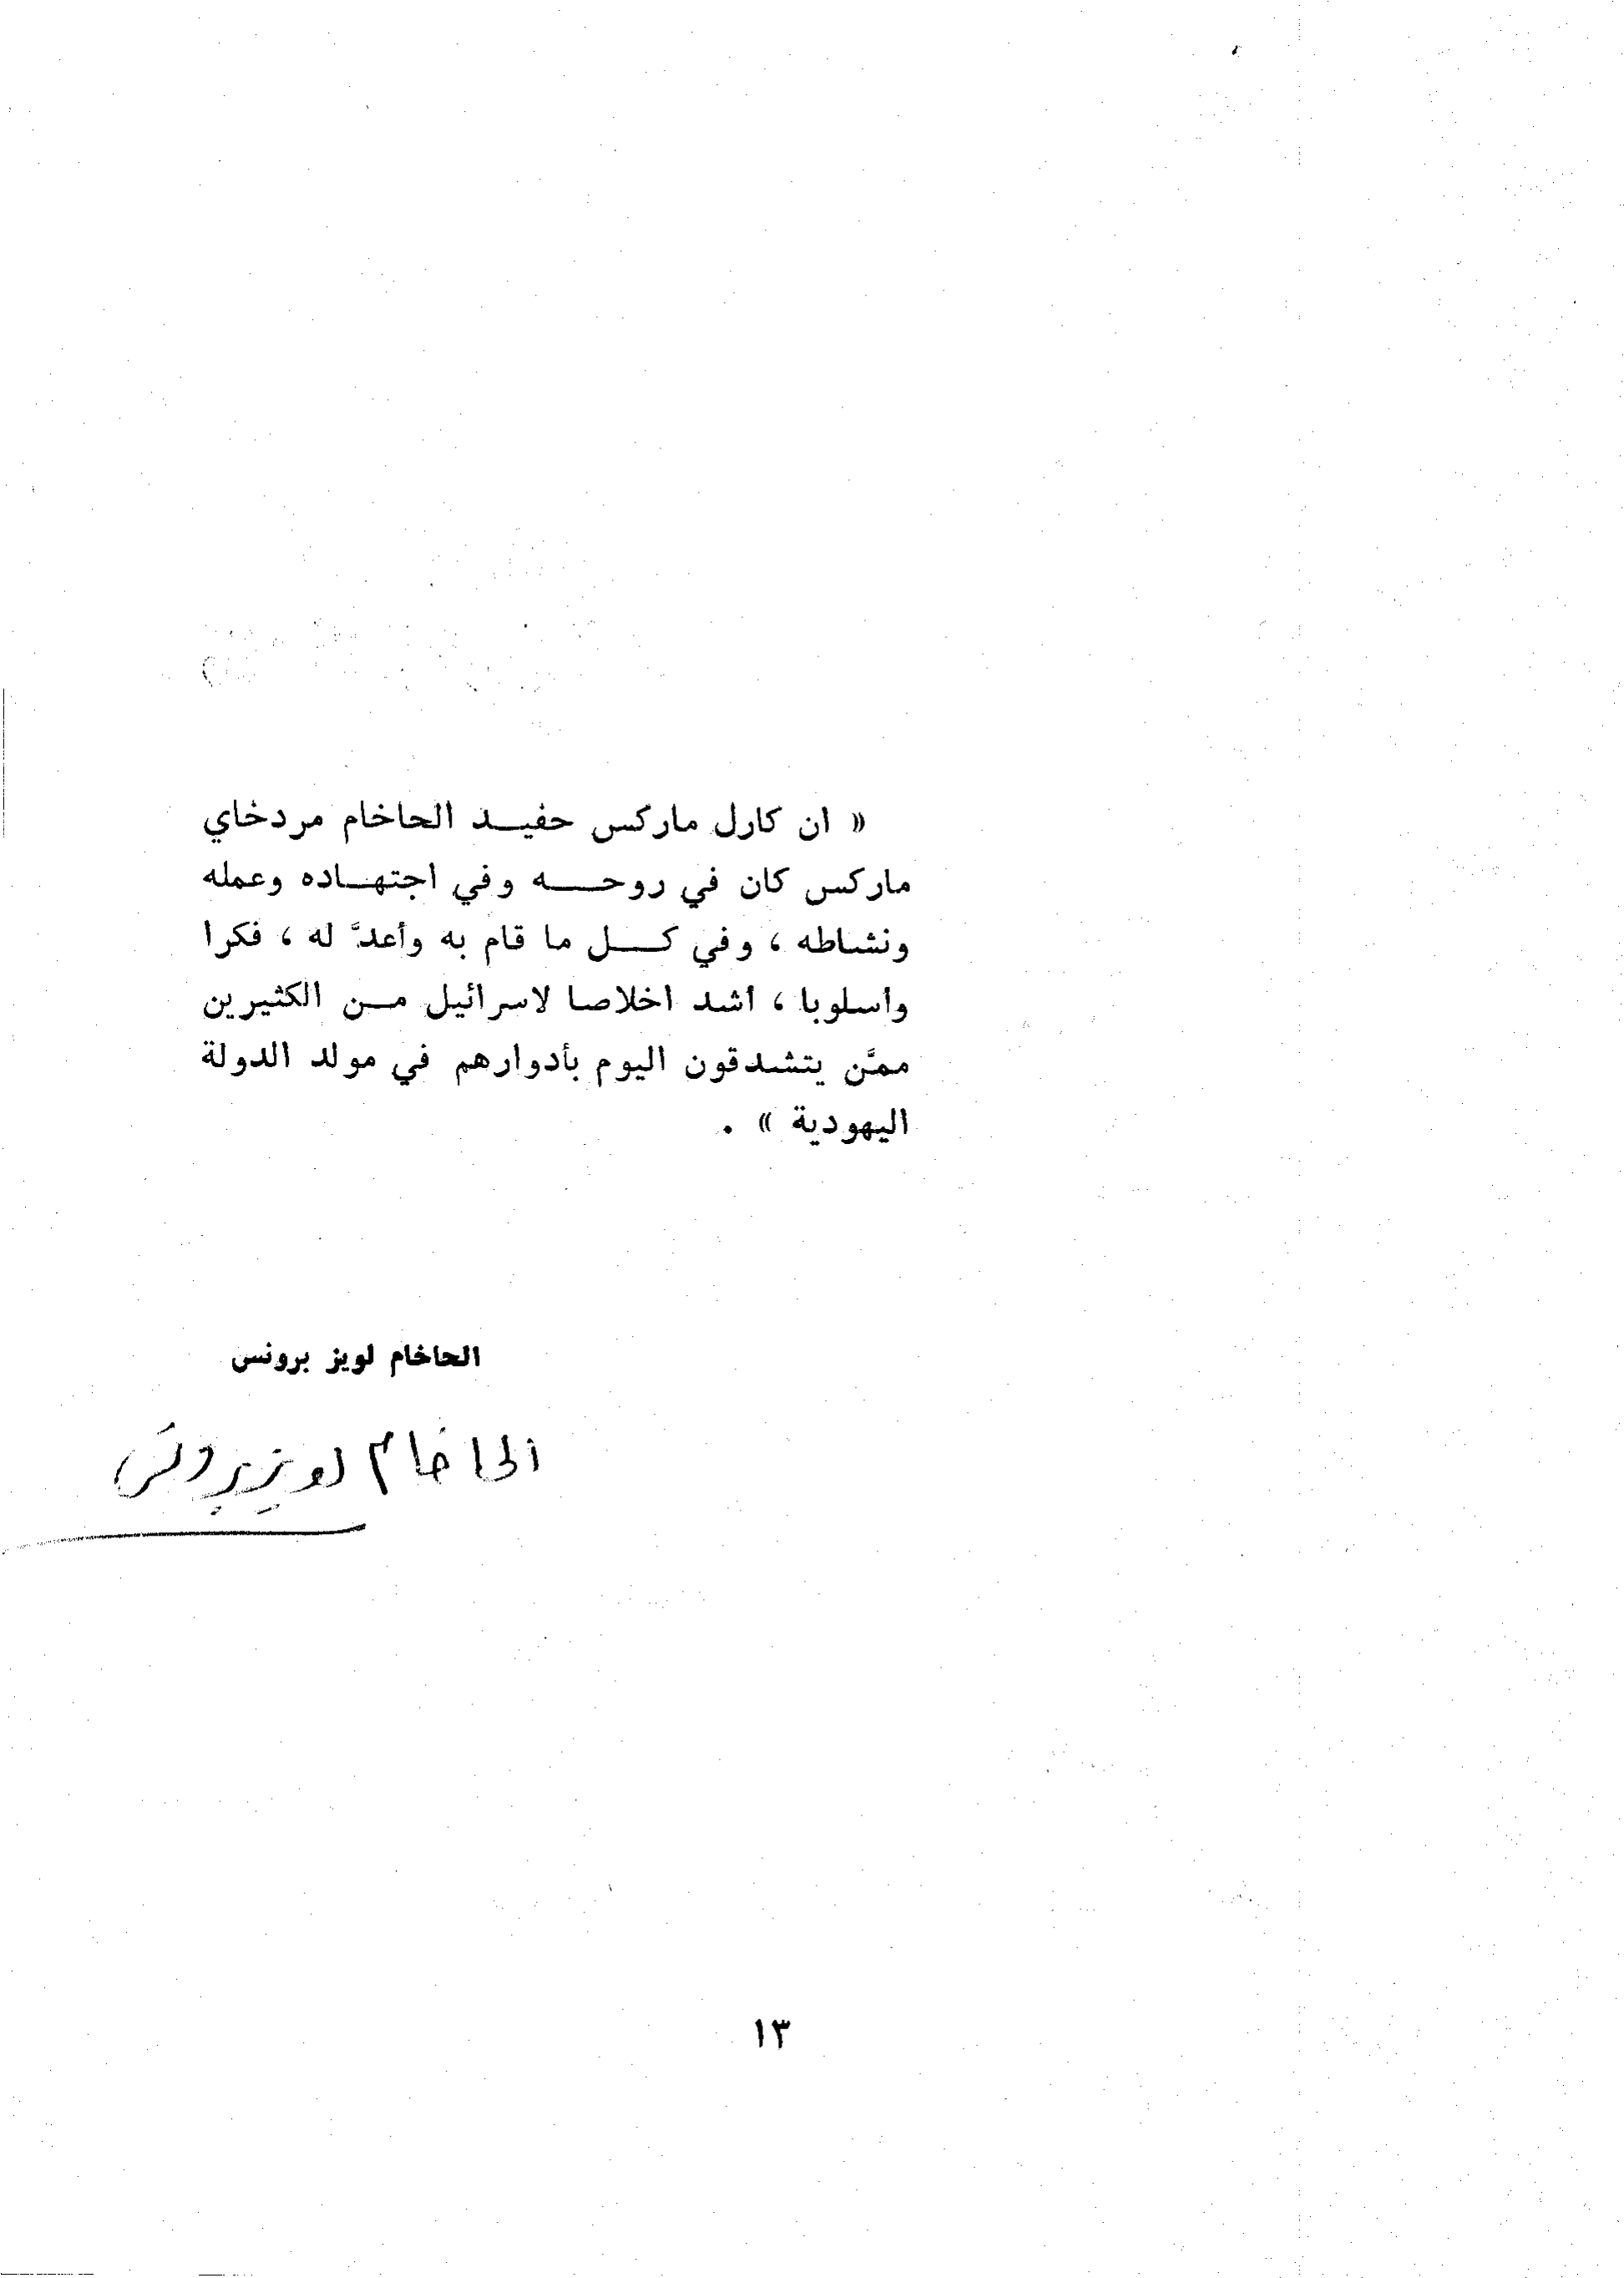 « ان كارل ماركس حفيـــد الحاخام مردخاي
ماركس كان في روحـــــه وفي اجتهــاده وعمله
ونشاطه ، وفي كــــل ما قام به وأعدَّ له ، فكرا
وأسلوبا ، أشد اخلاصا لاسرائيل مــن الكثيرين
ممَّن يتشدقون اليوم بأدوارهم في مولد الدولة
اليهودية » .
الحاخام لويز برونس
الحاخام لويز برونس
١٣